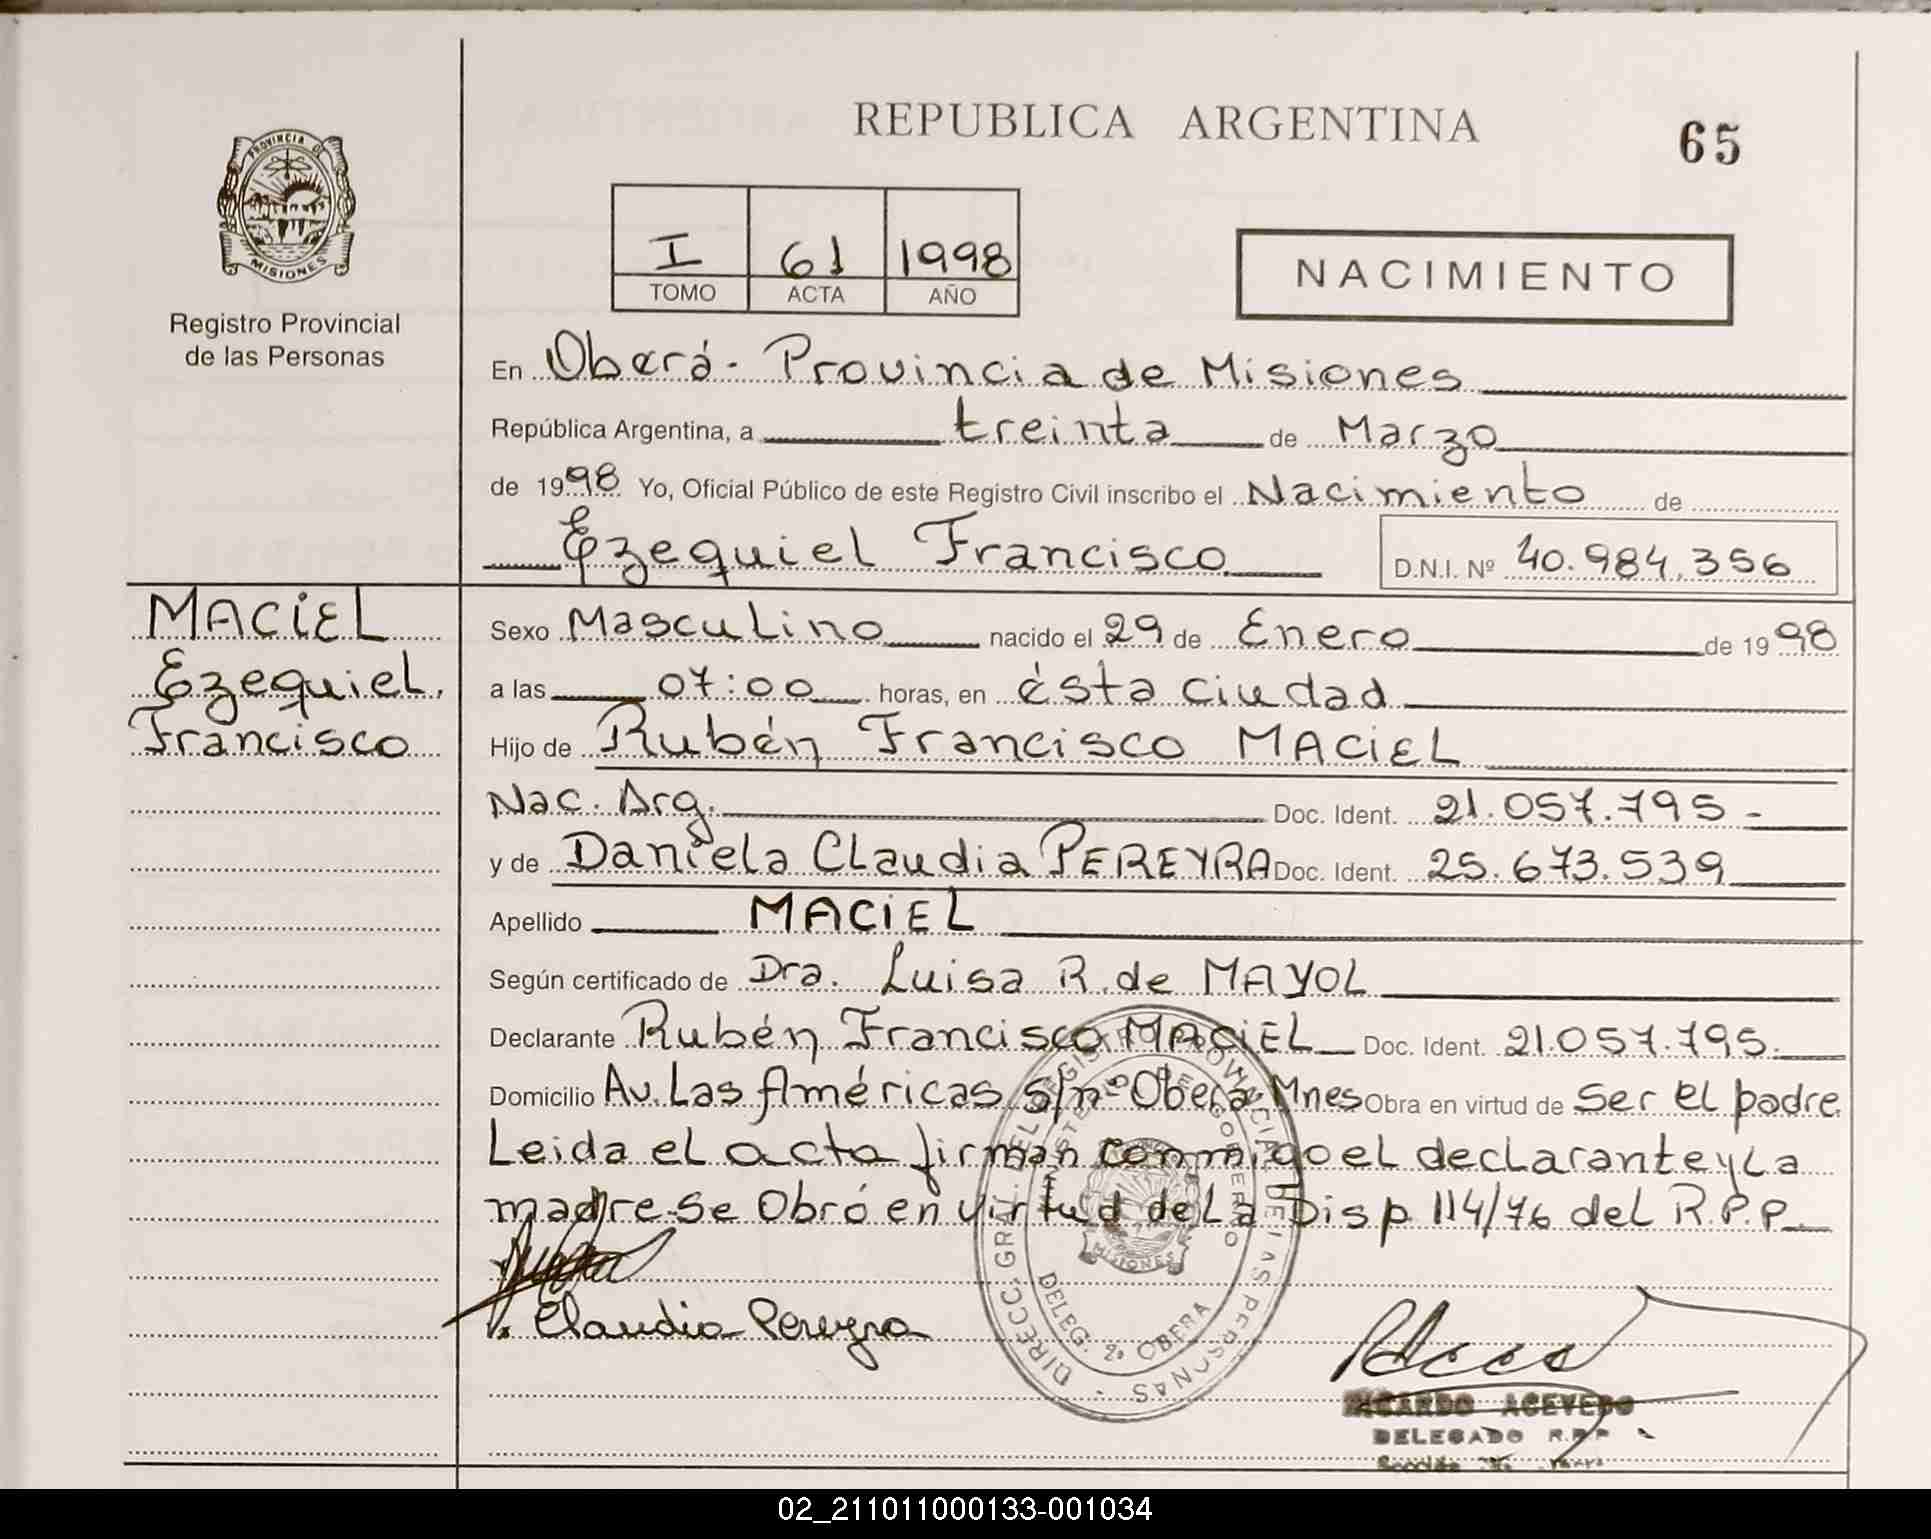 REPUBLICA ARGENTINA
65
PROVINCIA DE
MISIONES
Registro Provincial
de las Personas
I 61 1998
TOMO ACTA AÑO
NACIMIENTO
En Oberá - Provincia de Misiones
República Argentina, a treinta de Marzo
de 1998 Yo, Oficial Público de este Registro Civil inscribo el Nacimiento de
Ezequiel Francisco D.N.I. Nº 40.984.356
MACIEL
Ezequiel
Francisco
Sexo Masculino nacido el 29 de Enero de 1998
a las 07:00 horas, en ésta ciudad
Hijo de Rubén Francisco MACIEL
Nac. Arg. Doc. Ident. 21.057.795.-
y de Daniela Claudia PEREYRA Doc. Ident. 25.673.539
Apellido MACIEL
Según certificado de Dra. Luisa R. de MAYOL
Declarante Rubén Francisco MACIEL Doc. Ident. 21.057.795.
Domicilio Av. Las Américas s/nº Oberá Mnes Obra en virtud de ser el padre.
Leida el acta firman conmigo el declarante y la
madre. se Obró en virtud de La Disp 114/76 del R.P.P.
Claudia Pereyra
DIRECC. GRAL. DEL REGISTRO PROVINCIAL DE LAS PERSONAS
MINISTERIO DE GOBIERNO
MISIONES
DELEG. 2ª OBERA
RICARDO ACEVEDO
DELEGADO R.P.P.
02_211011000133-001034